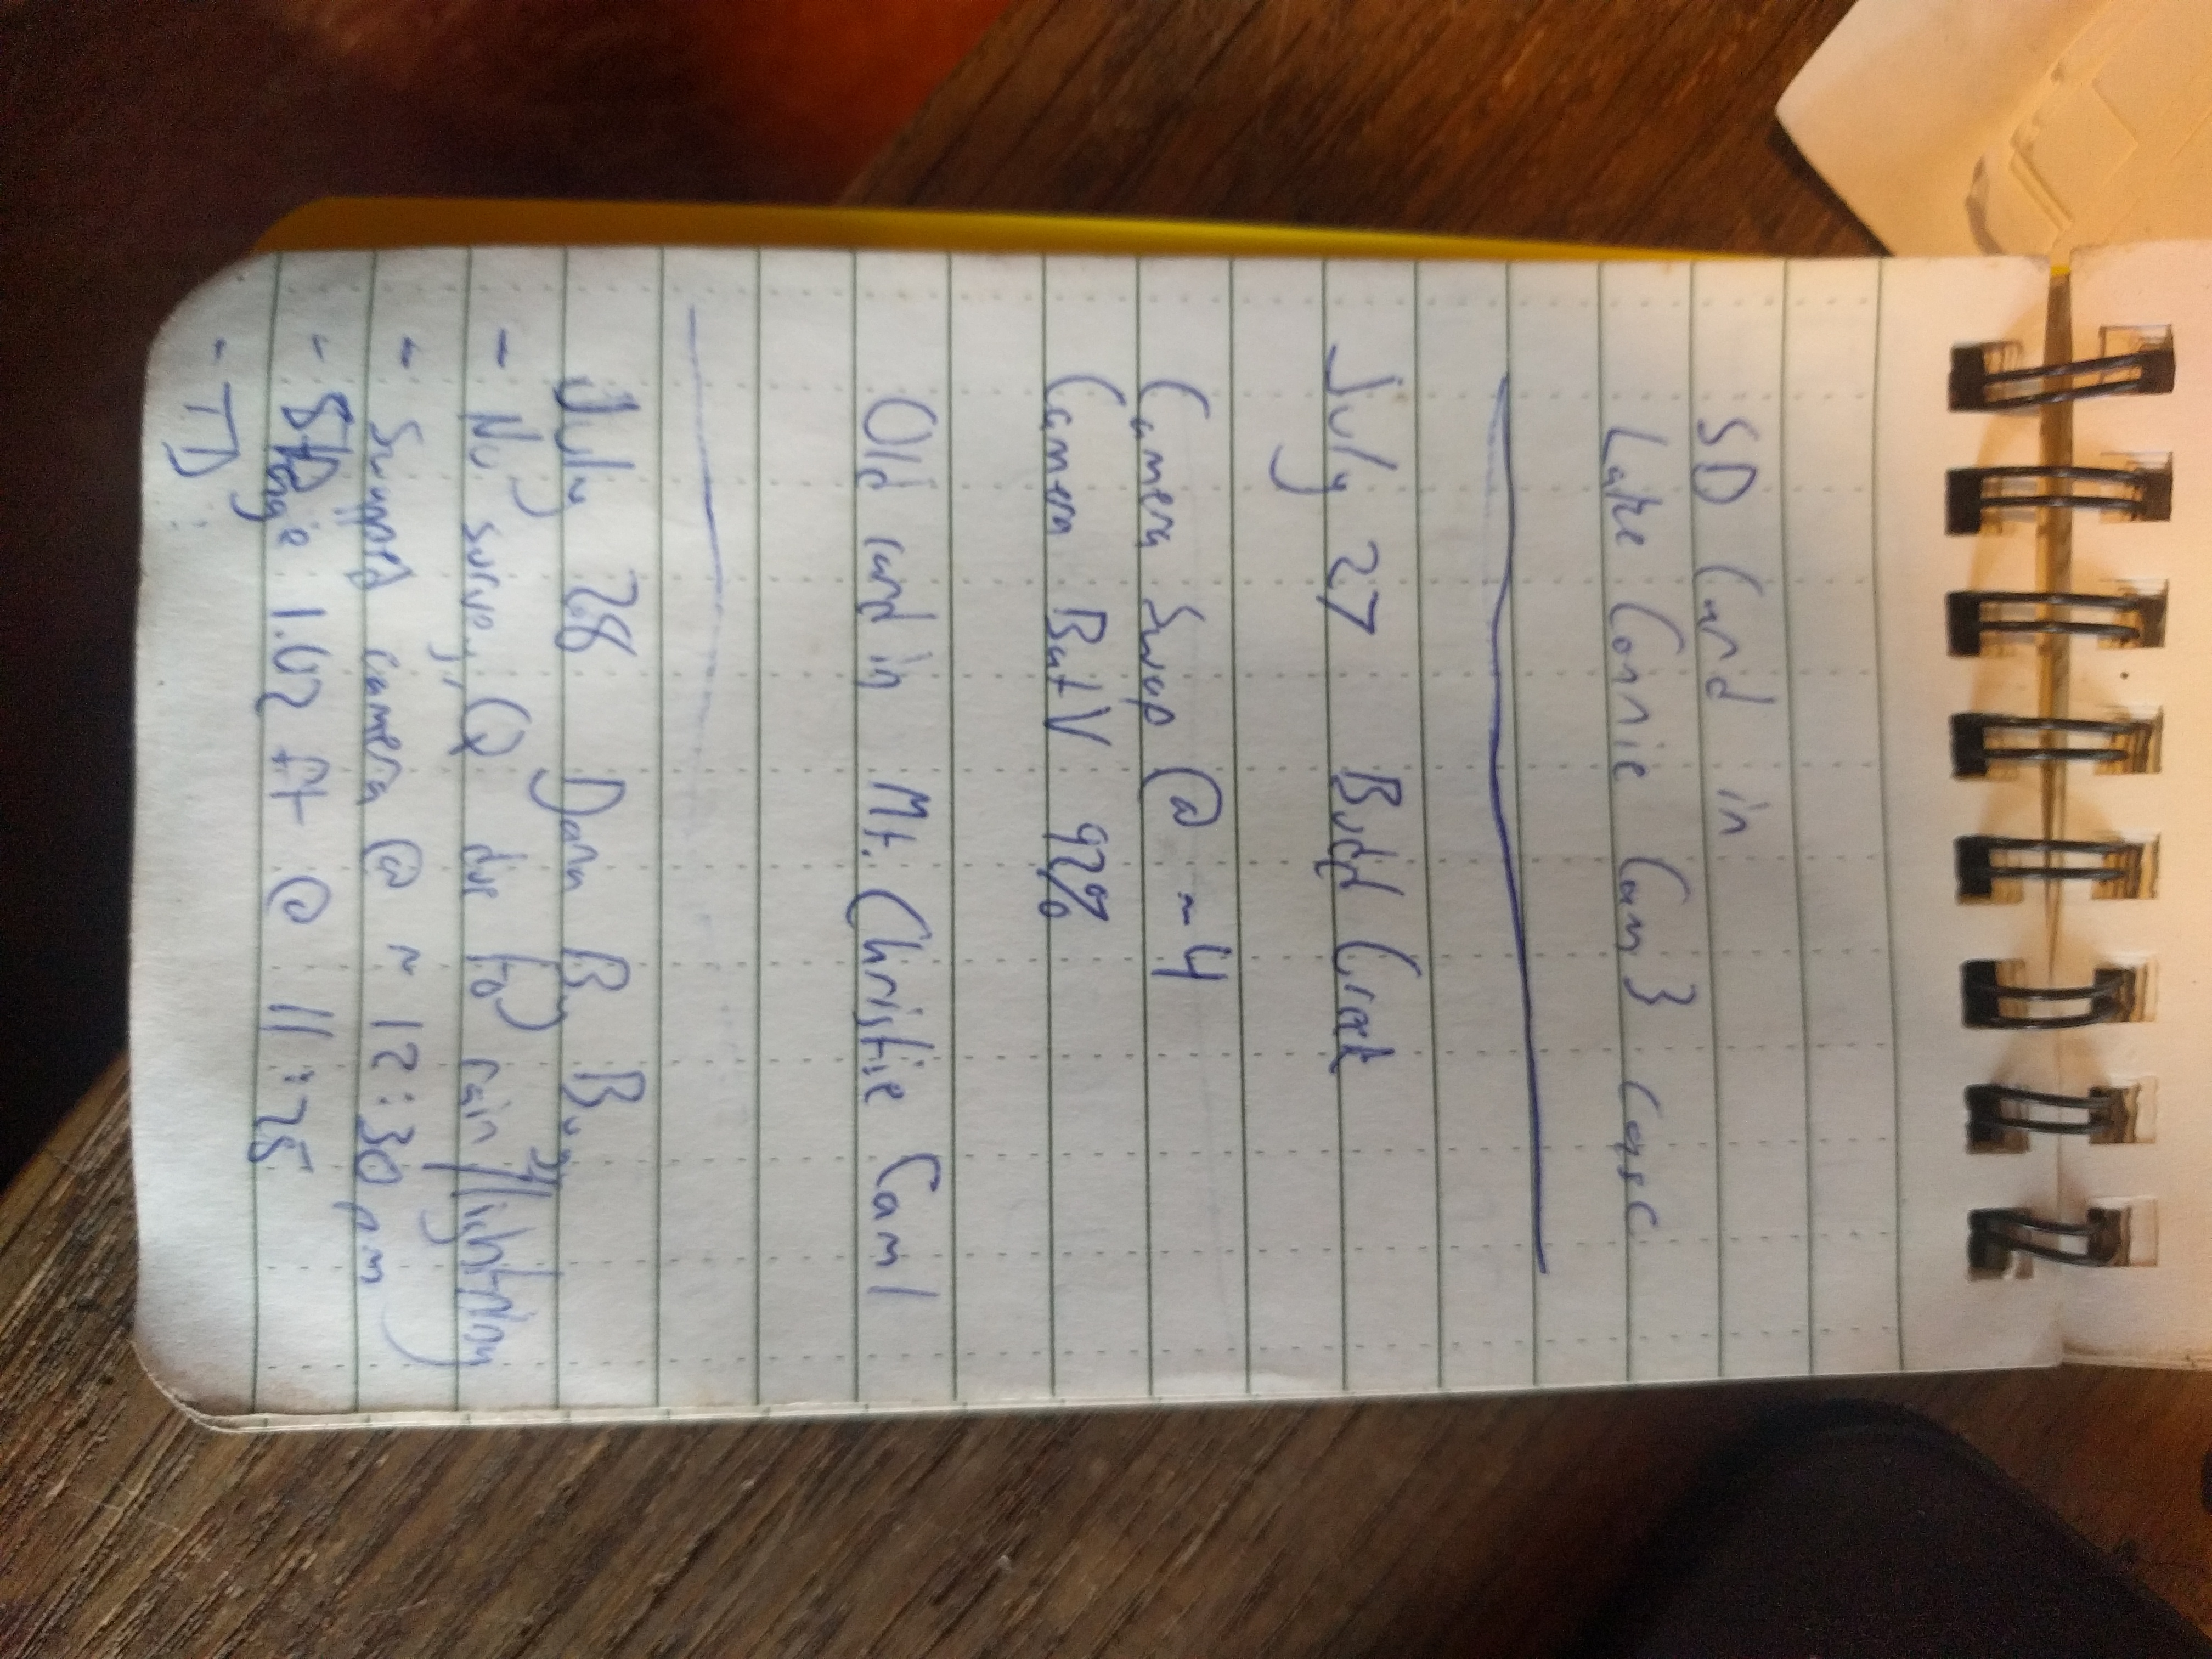 SD Card in
Lake Connie Cam 3 case
July 27 Budd Creek
Camera Swap @ ~4
Camera BatV 92%
Old card in Mt. Christie Cam 1
July 28 Dana By Bug
- No survey, Q due to rain/lightning
- Swapped camera @ ~ 12:30 pm
- Stage 1.02 ft @ 11:25
- TD